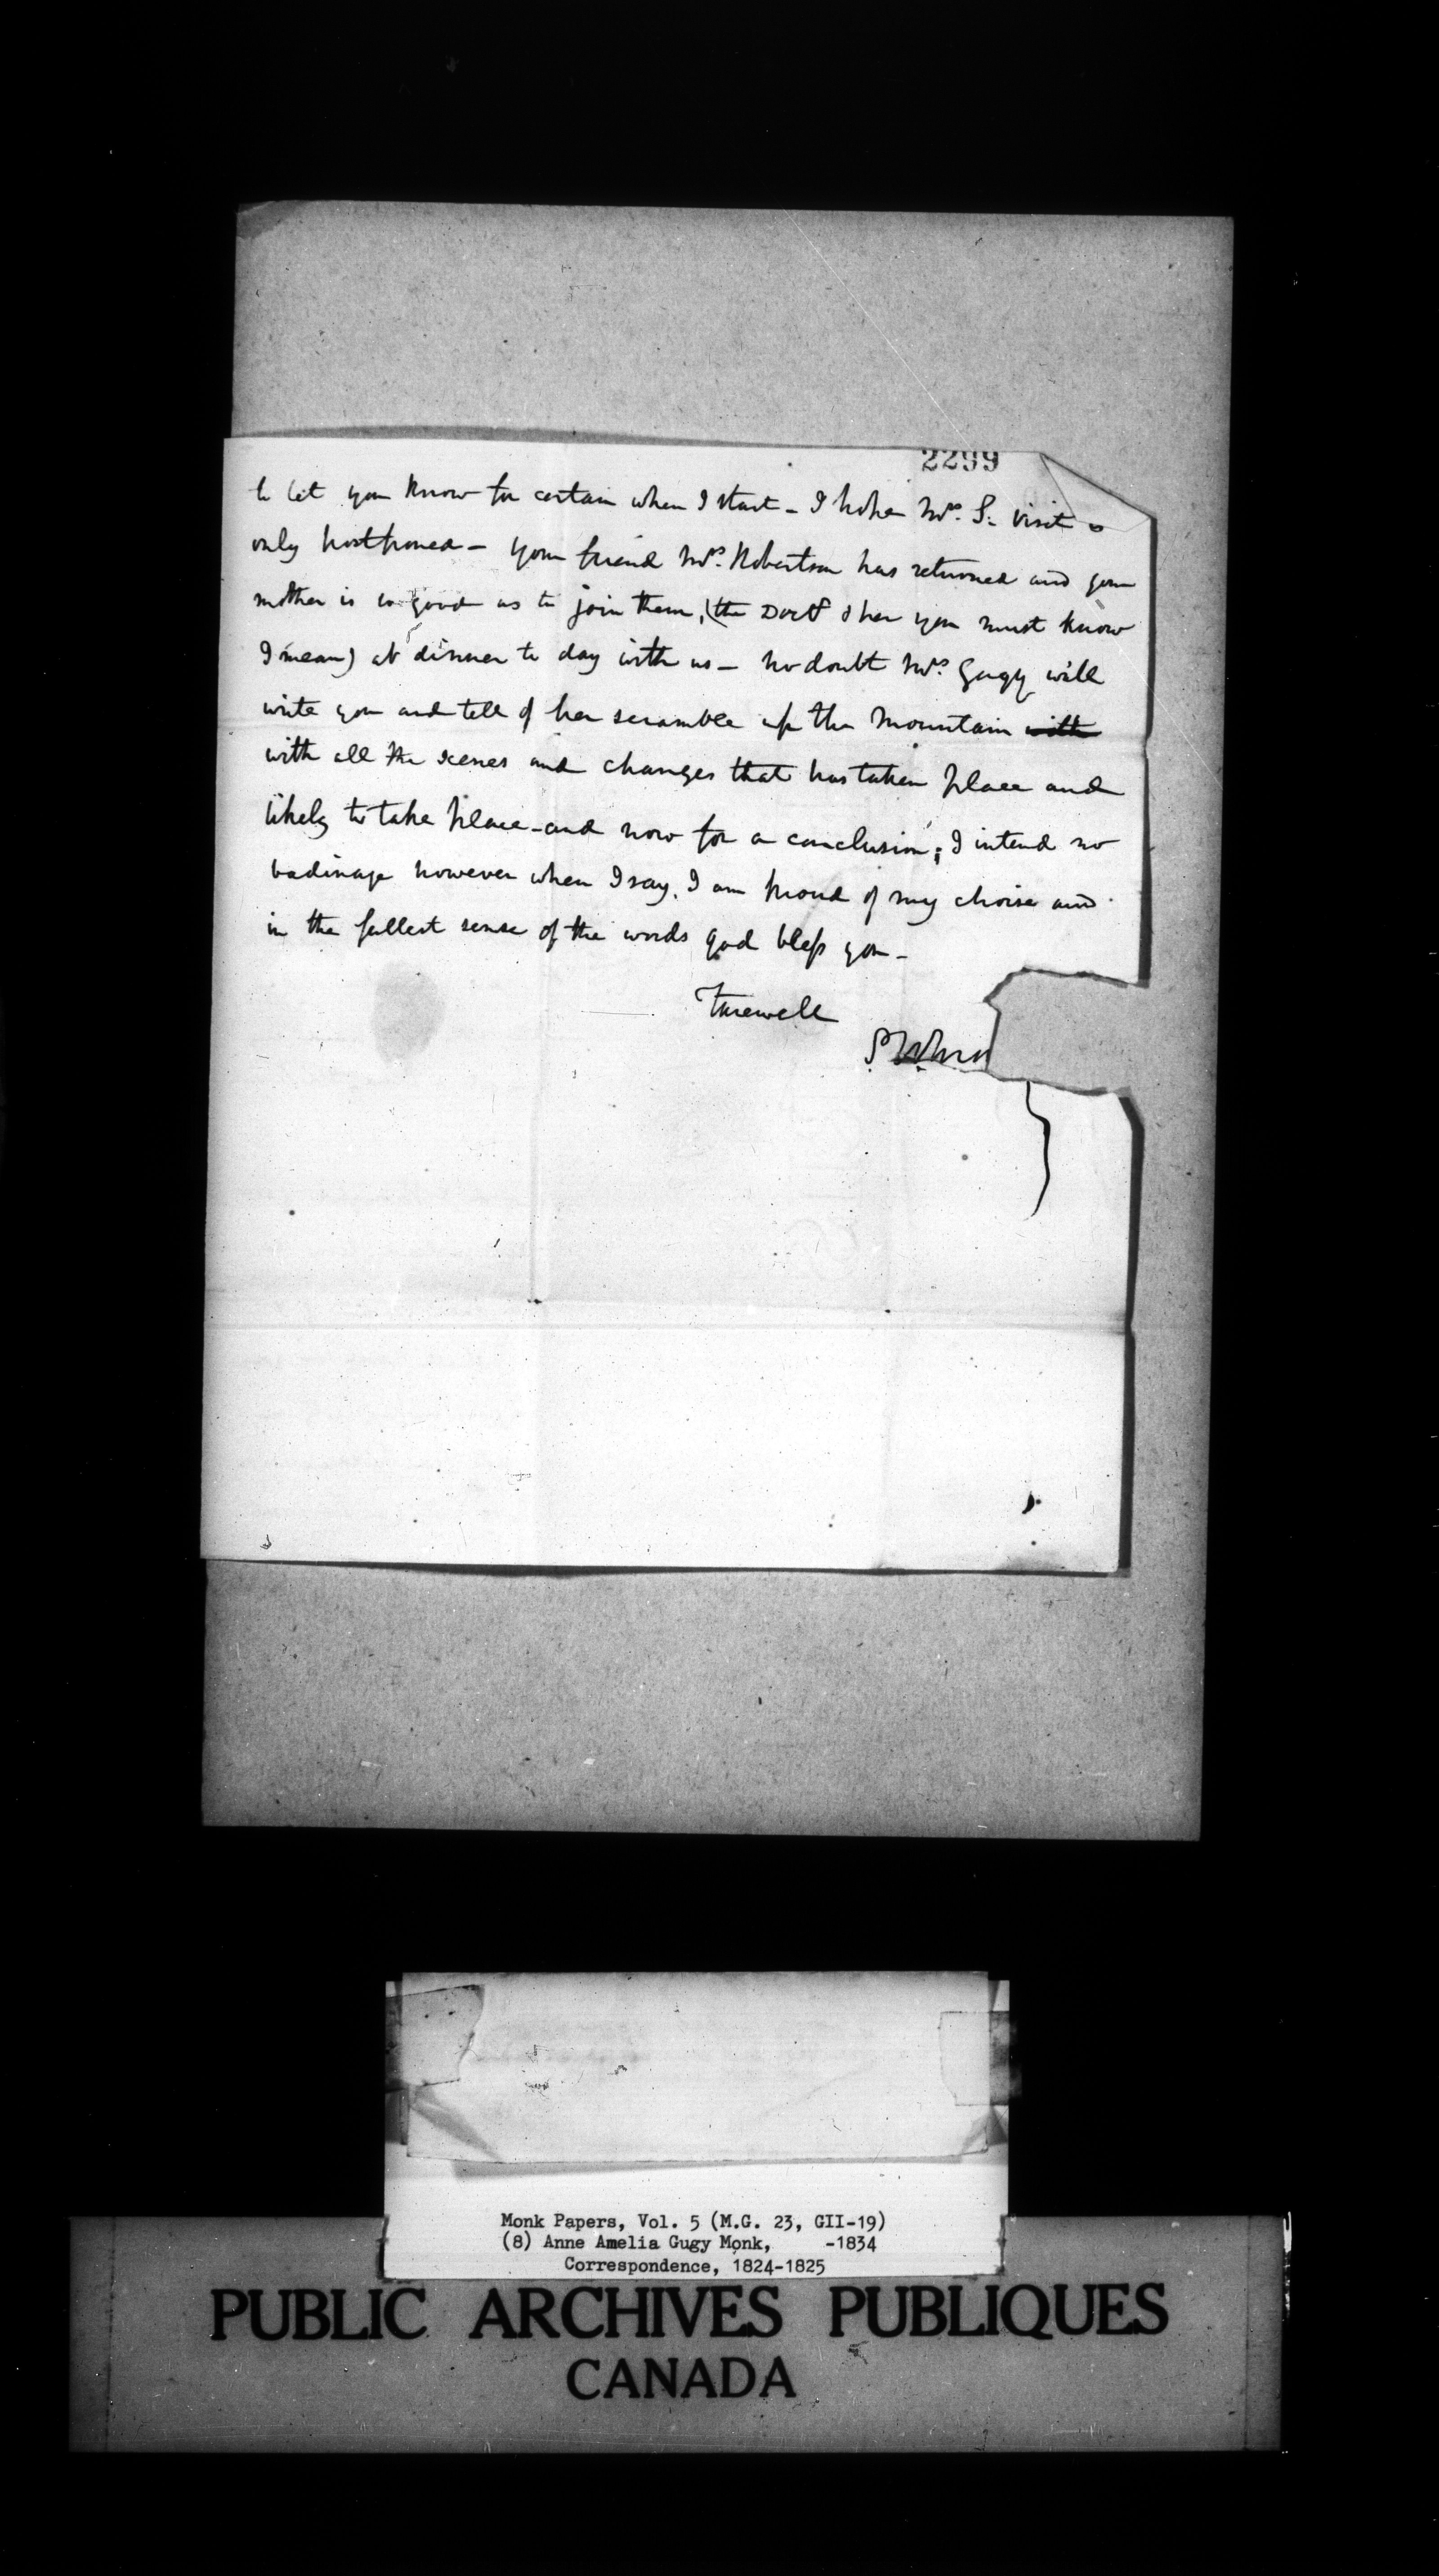 2299
to let you know for certain when I start - I hope Mrs. S. visit is
only postponed - your friend Mrs. Robertson has returned and your
mother is so good as to join them, (the Doctr & her you must know
I mean) at dinner to day with us - no doubt Mrs. Gugy will
write you and tell of her scramble up the mountain with
with all the scenes and changes that has taken place and
likely to take place - and now for a conclusion; I intend no
badinage however when I say, I am proud of my choise and
in the fullest sense of the words god bless you -
Farewell
S. W.
Monk Papers, Vol. 5 (M.G. 23, GII-19)
(8) Anne Amelia Gugy Monk, -1834
Correspondence, 1824-1825
PUBLIC ARCHIVES PUBLIQUES
CANADA